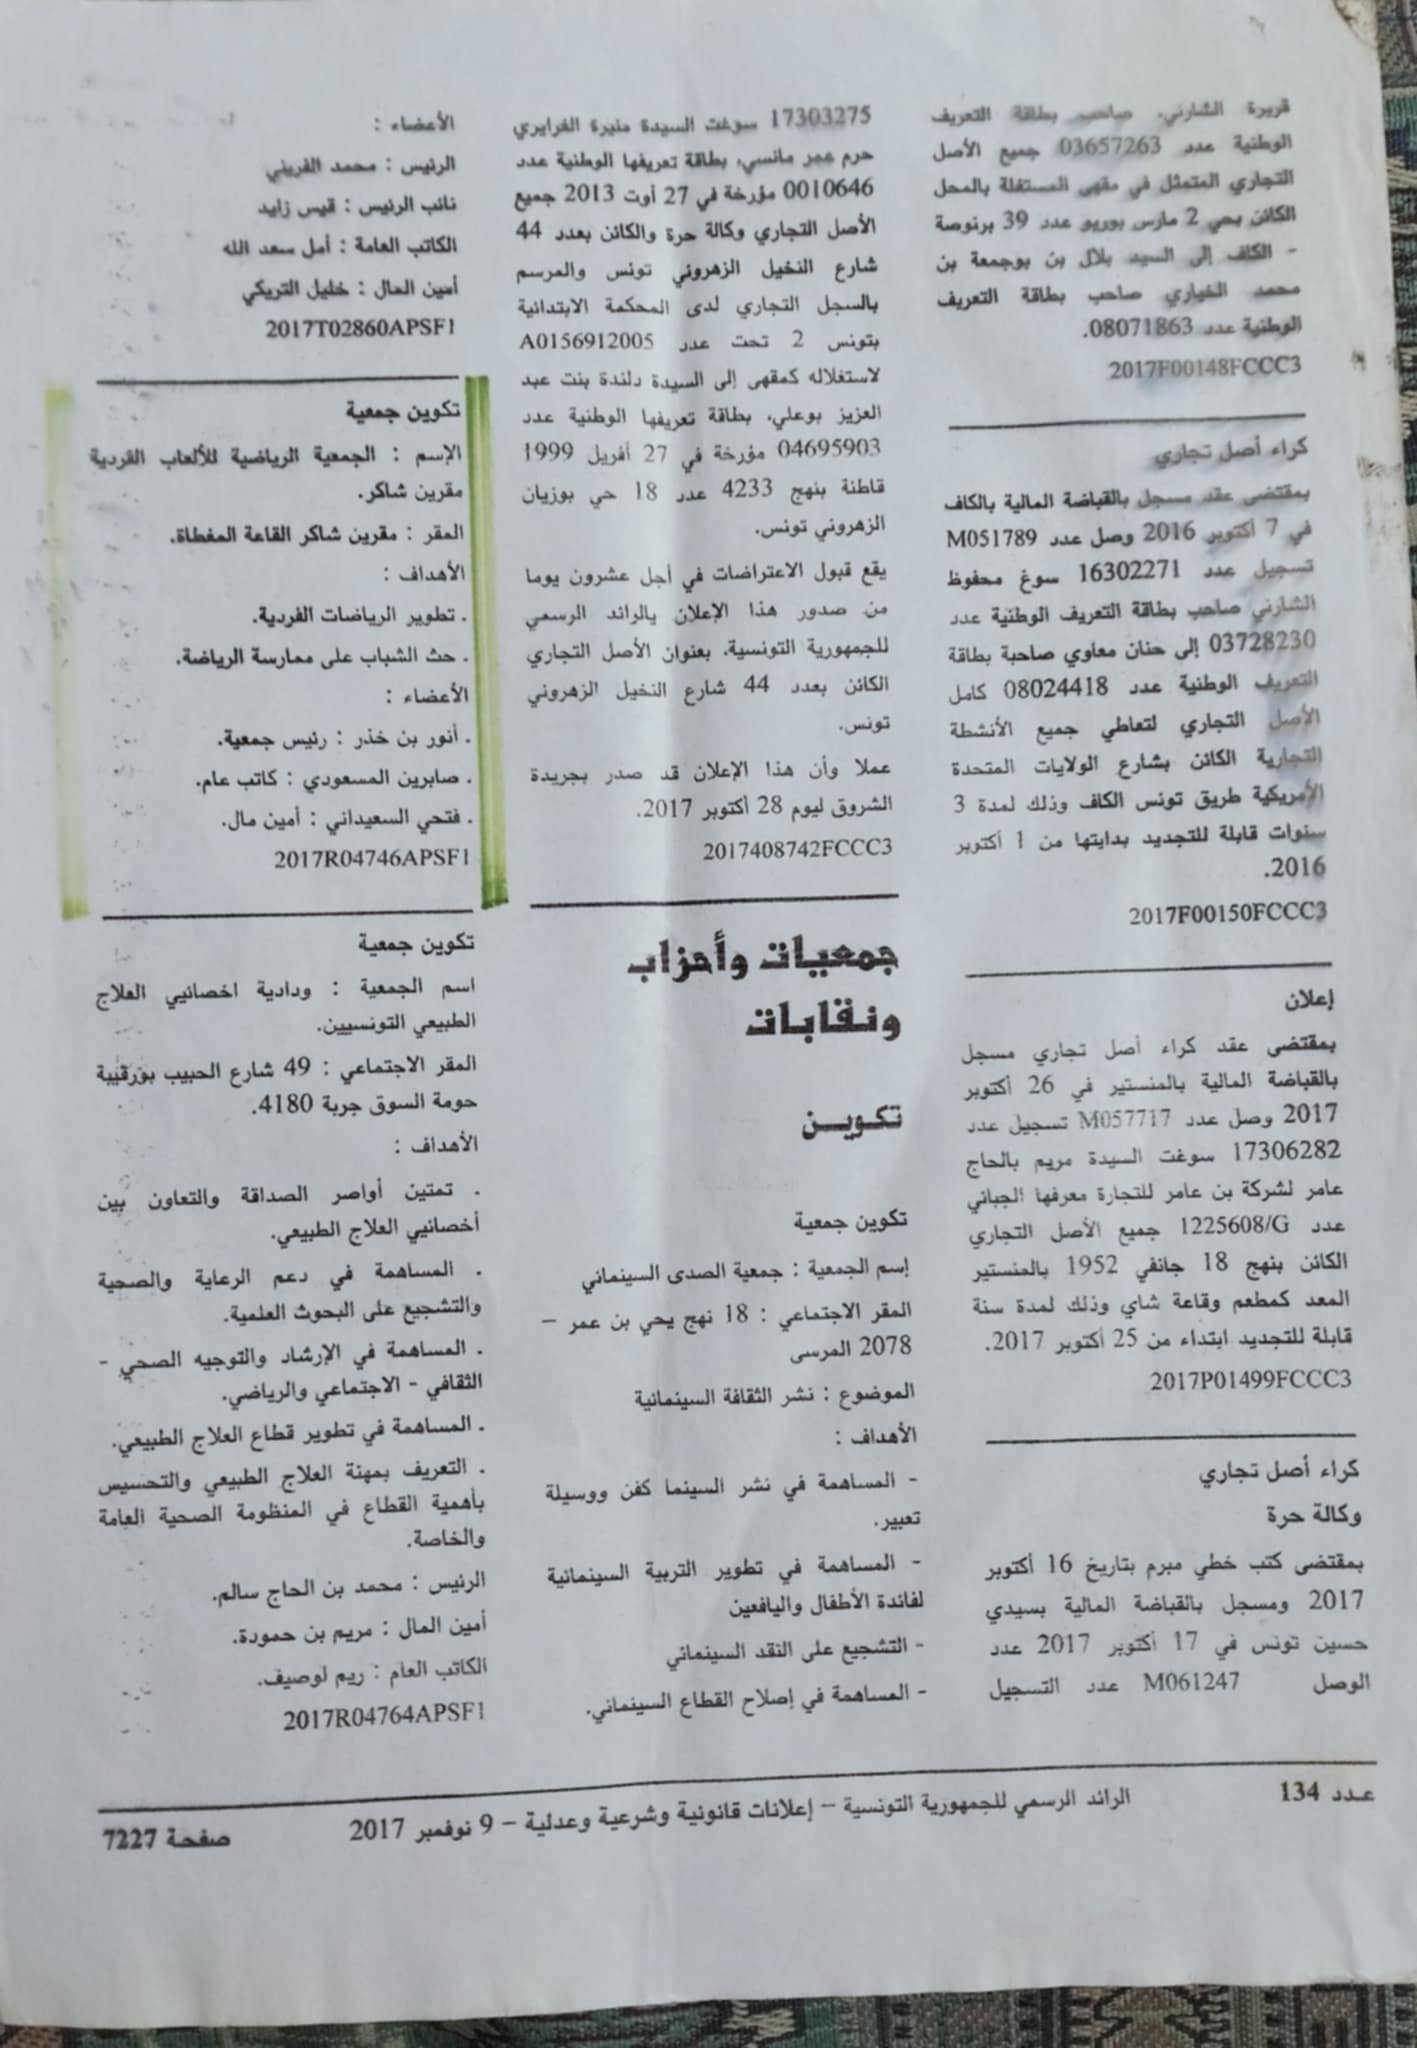 قريرة الشارني، صاحب بطاقة التعريف
الوطنية عدد 03657263 جميع الأصل
التجاري المتمثل في مقهى المستغلة بالمحل
الكائن بحي 2 مارس بوريو عدد 39 برنوصة
- الكاف إلى السيد بلال بن بوجمعة بن
محمد الخياري صاحب بطاقة التعريف
الوطنية عدد 08071863.
2017F00148FCCC3
كراء أصل تجاري
بمقتضى عقد مسجل بالقباضة المالية بالكاف
في 7 أكتوبر 2016 وصل عدد M051789
تسجيل عدد 16302271 سوغ محفوظ
الشارني صاحب بطاقة التعريف الوطنية عدد
03728230 إلى حنان معاوي صاحبة بطاقة
التعريف الوطنية عدد 08024418 كامل
الأصل التجاري لتعاطي جميع الأنشطة
التجارية الكائن بشارع الولايات المتحدة
الأمريكية طريق تونس الكاف وذلك لمدة 3
سنوات قابلة للتجديد بدايتها من 1 أكتوبر
2016.
2017F00150FCCC3
إعلان
بمقتضى عقد كراء أصل تجاري مسجل
بالقباضة المالية بالمنستير في 26 أكتوبر
2017 وصل عدد M057717 تسجيل عدد
17306282 سوغت السيدة مريم بالحاج
عامر لشركة بن عامر للتجارة معرفها الجبائي
عدد 1225608/G جميع الأصل التجاري
الكائن بنهج 18 جانفي 1952 بالمنستير
المعد كمطعم وقاعة شاي وذلك لمدة سنة
قابلة للتجديد ابتداء من 25 أكتوبر 2017.
2017P01499FCCC3
كراء أصل تجاري
وكالة حرة
بمقتضى كتب خطي مبرم بتاريخ 16 أكتوبر
2017 ومسجل بالقباضة المالية بسيدي
حسين تونس في 17 أكتوبر 2017 عدد
الوصل M061247 عدد التسجيل
17303275 سوغت السيدة منيرة الغرايري
حرم عمر مانسي، بطاقة تعريفها الوطنية عدد
0010646 مؤرخة في 27 أوت 2013 جميع
الأصل التجاري وكالة حرة والكائن بعدد 44
شارع النخيل الزهروني تونس والمرسم
بالسجل التجاري لدى المحكمة الابتدائية
بتونس 2 تحت عدد A0156912005
لاستغلاله كمقهى إلى السيدة دلندة بنت عبد
العزيز بوعلي، بطاقة تعريفها الوطنية عدد
04695903 مؤرخة في 27 أفريل 1999
قاطنة بنهج 4233 عدد 18 حي بوزيان
الزهروني تونس.
يقع قبول الاعتراضات في أجل عشرون يوما
من صدور هذا الإعلان بالرائد الرسمي
للجمهورية التونسية، بعنوان الأصل التجاري
الكائن بعدد 44 شارع النخيل الزهروني
تونس.
عملا وأن هذا الإعلان قد صدر بجريدة
الشروق ليوم 28 أكتوبر 2017.
2017408742FCCC3
جمعيات وأحزاب
ونقابات
تكوين
تكوين جمعية
إسم الجمعية : جمعية الصدى السينمائي
المقر الاجتماعي : 18 نهج يحي بن عمر –
2078 المرسى
الموضوع : نشر الثقافة السينمائية
الأهداف :
- المساهمة في نشر السينما كفن ووسيلة
تعبير.
- المساهمة في تطوير التربية السينمائية
لفائدة الأطفال واليافعين
- التشجيع على النقد السينمائي
- المساهمة في إصلاح القطاع السينمائي.
الأعضاء :
الرئيس : محمد الفريني
نائب الرئيس : قيس زايد
الكاتب العامة : أمل سعد الله
أمين المال : خليل التريكي
2017T02860APSF1
تكوين جمعية
الإسم : الجمعية الرياضية للألعاب الفردية
مقرين شاكر.
المقر : مقرين شاكر القاعة المغطاة.
الأهداف :
. تطوير الرياضات الفردية.
. حث الشباب على ممارسة الرياضة.
الأعضاء :
. أنور بن خذر : رئيس جمعية.
. صابرين المسعودي : كاتب عام.
. فتحي السعيداني : أمين مال.
2017R04746APSF1
تكوين جمعية
اسم الجمعية : ودادية اخصائيي العلاج
الطبيعي التونسيين.
المقر الاجتماعي : 49 شارع الحبيب بورقيبة
حومة السوق جربة 4180.
الأهداف :
. تمتين أواصر الصداقة والتعاون بين
أخصائيي العلاج الطبيعي.
. المساهمة في دعم الرعاية والصحية
والتشجيع على البحوث العلمية.
. المساهمة في الإرشاد والتوجيه الصحي -
الثقافي - الاجتماعي والرياضي.
. المساهمة في تطوير قطاع العلاج الطبيعي.
. التعريف بمهنة العلاج الطبيعي والتحسيس
بأهمية القطاع في المنظومة الصحية العامة
والخاصة.
الرئيس : محمد بن الحاج سالم.
أمين المال : مريم بن حمودة.
الكاتب العام : ريم لوصيف.
2017R04764APSF1
عـدد 134
الرائد الرسمي للجمهورية التونسية – إعلانات قانونية وشرعية وعدلية – 9 نوفمبر 2017
صفحة 7227